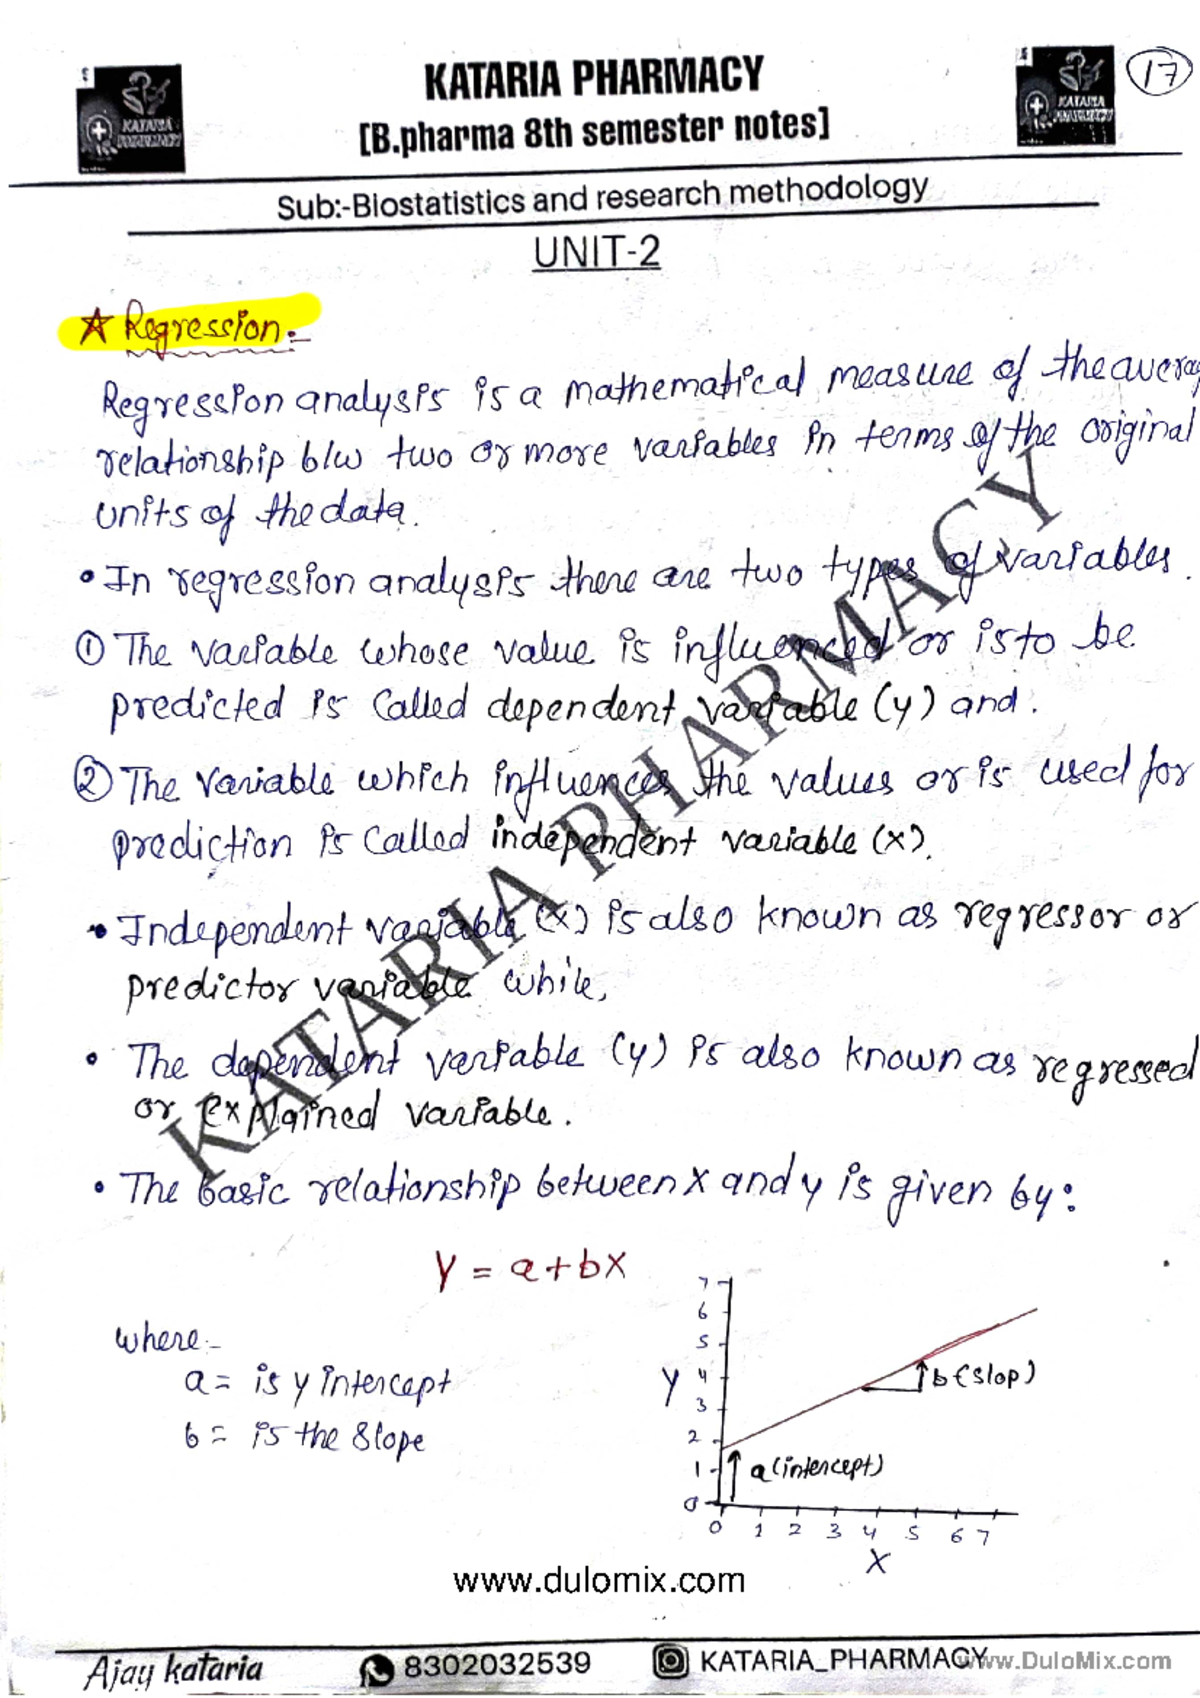 KATARIA PHARMACY
[B.pharma 8th semester notes]
17
KATARIA
PHARMACY
KATARIA
PHARMACY
Sub:-Biostatistics and research methodology
UNIT-2
☆ Regression:-
Regression analysis is a mathematical measure of the averag
relationship b/w two or more variables in terms of the original
units of the data.
• In regression analysis there are two types of variables.
① The variable whose value is influenced or is to be
predicted is called dependent variable (y) and.
② The variable which influences the values or is used for
prediction is called independent variable (x).
• Independent variable (x) is also known as regressor or
predictor variable while,
• The dependent variable (y) is also known as regressed
or explained variable.
• The basic relationship between x and y is given by:
Y = a+bx
where:-
a = is y intercept
b = is the slope
7
6
5
Y 4
3
2
1
0
b (slop)
a (intercept)
0 1 2 3 4 5 6 7
X
KATARIA PHARMACY
www.dulomix.com
Ajay kataria
8302032539
KATARIA_PHARMACY
www.DuloMix.com